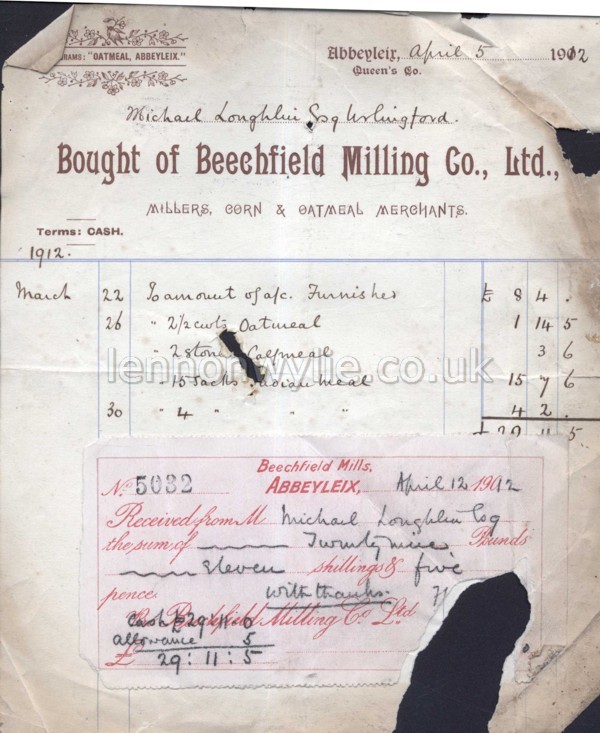 GRAMS: "OATMEAL, ABBEYLEIX."
Abbeyleix, April 5 1912
Queen's Co.
Michael Loughlin Esq Urlingford.
Bought of Beechfield Milling Co., Ltd.,
MILLERS, CORN & OATMEAL MERCHANTS.
Terms: CASH.
1912.
March 22 To amount of a/c. Furnished £ 8 4 .
26 " 2½ cwts Oatmeal 1 14 5
" 2 stone Calfmeal 3 6
lennonwylie.co.uk
" 15 Sacks Indian meal 15 7 6
30 " 4 " " " 4 2 .
£ 29 11 5
Beechfield Mills,
No. 5032 ABBEYLEIX, April 12 1912
Received from M Michael Loughlin Esq
the sum of Twenty nine Pounds
Eleven shillings & five
pence with thanks.
Beechfield Milling Co. Ltd
Cash £29 11 0
allowance 5
£ 29 : 11 : 5